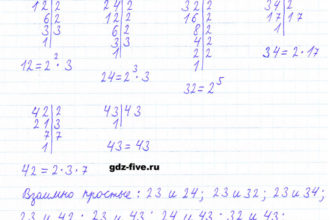 12|2 24|2 32|2 34|2
6|2 12|2 16|2 17|17
3|3 6|2 8|2 1|
1| 3|3 4|2
1| 2|2
1|
12=2²·3
24=2³·3
32=2⁵
34=2·17
42|2 43|43
21|3 1|
7|7
1|
42=2·3·7
43=43
gdz-five.ru
Взаимно простые: 23 и 24; 23 и 32; 23 и 34;
23 и 42; 23 и 43; 24 и 43; 32 и 43;